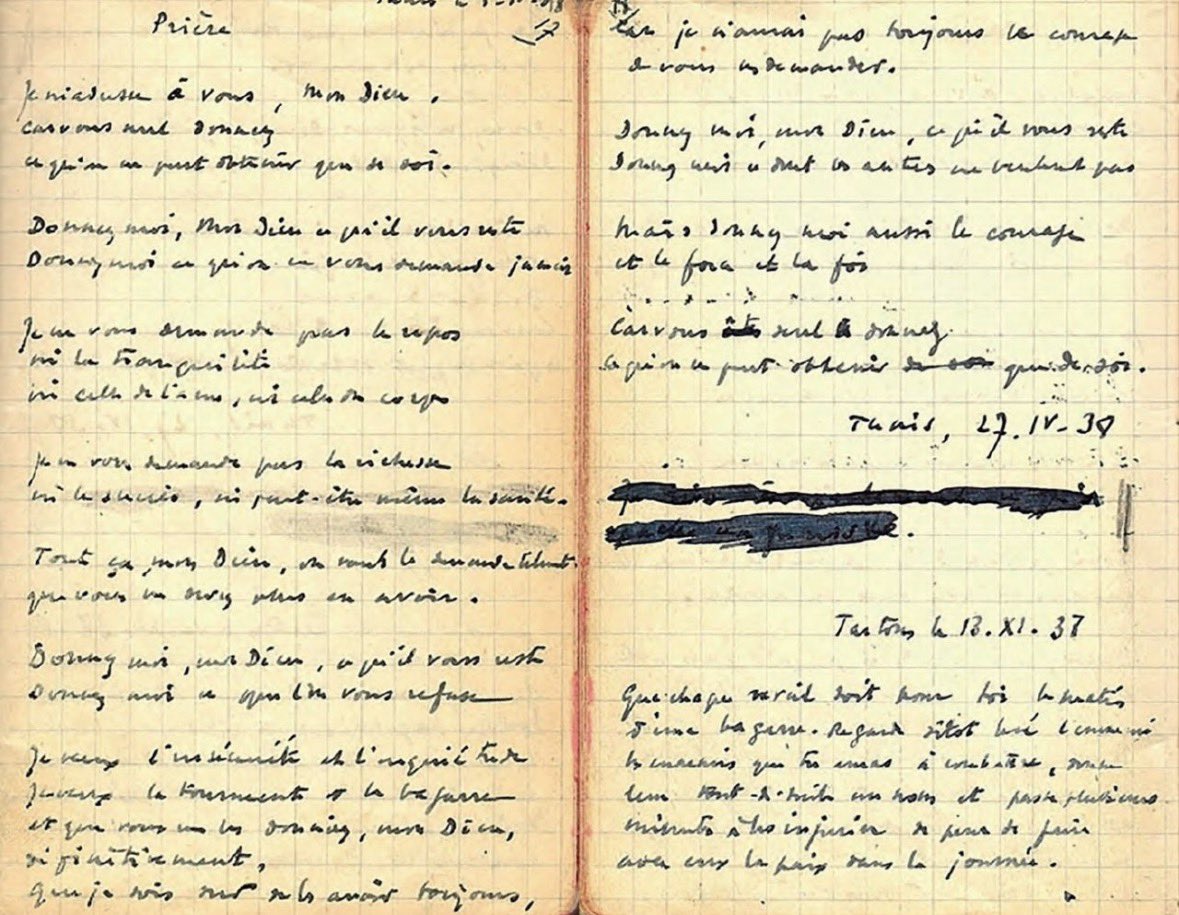 Prière
17
Je m'adresse à vous, mon Dieu,
car vous seul donnez
ce qu'on ne peut obtenir que de soi.
Donnez moi, mon Dieu ce qu'il vous reste
Donnez moi ce qu'on ne vous demande jamais
Je ne vous demande pas le repos
ni la tranquilité
ni celle de l'âme, ni celle du corps
Je ne vous demande pas la richesse
ni le succès, ni peut-être même la santé.
Tout ça, mon Dieu, on vous le demande tellement
que vous ne devez plus en avoir.
Donnez moi, mon Dieu, ce qu'il vous reste
Donnez moi ce que l'on vous refuse
Je veux l'insécurité et l'inquiétude
Je veux la tourmente et la bagarre
et que vous me les donniez, mon Dieu,
définitivement,
que je sois sûr de les avoir toujours,
Car je n'aurai pas toujours le courage
de vous les demander.
Donnez moi, mon Dieu, ce qu'il vous reste
Donnez moi ce dont les autres ne veulent pas
Mais donnez moi aussi le courage
et la force et la foi
Car vous seul donnez
ce qu'on ne peut obtenir que de soi.
Tunis, 27.IV-38
le 13.XI.37
Que chaque réveil soit pour toi le matin
d'une bagarre. Regarde sitôt levé l'ennemi
que tu auras à combattre, donne
leur tout-de-suite un nom et passe plusieurs
minutes à les injurier de peur de faire
avec eux la paix dans la journée.